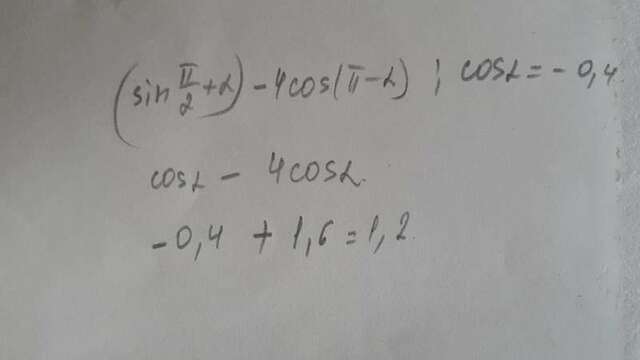 (sin π/2 + α) - 4cos(π - α) ; cosα = - 0,4
cosα - 4cosα.
-0,4 + 1,6 = 1,2.